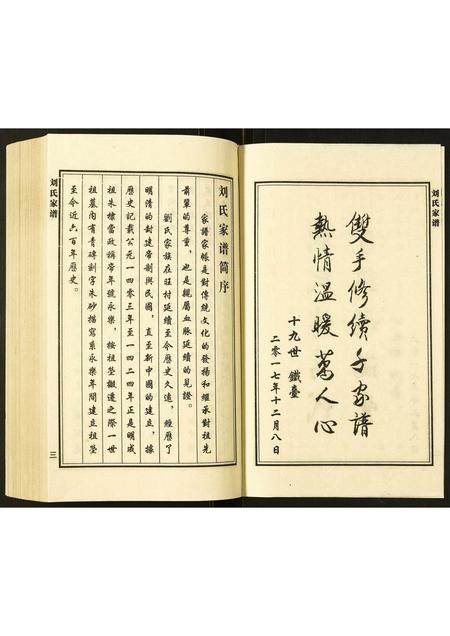 刘氏家谱
雙手修續千家譜
熱情溫暖萬人心
十九世 鐵臺
二零一七年十二月八日
刘氏家谱简序
家譜家帳是對傳統文化的發揚和繼承對祖先
前輩的尊重，也是親屬血脈延續的見證。
劉氏家族在旺村延續至今歷史久遠，經歷了
明清的封建帝制與民國，直至新中國的建立，據
歷史記載公元一四零三年至一四二四年正是明成
祖朱棣當政稱帝年號永樂，按祖塋搬遷之際一世
祖墓內有青磚刻字朱砂描寫系永樂年間建立祖塋
至今近六百年歷史。
刘氏家谱
三